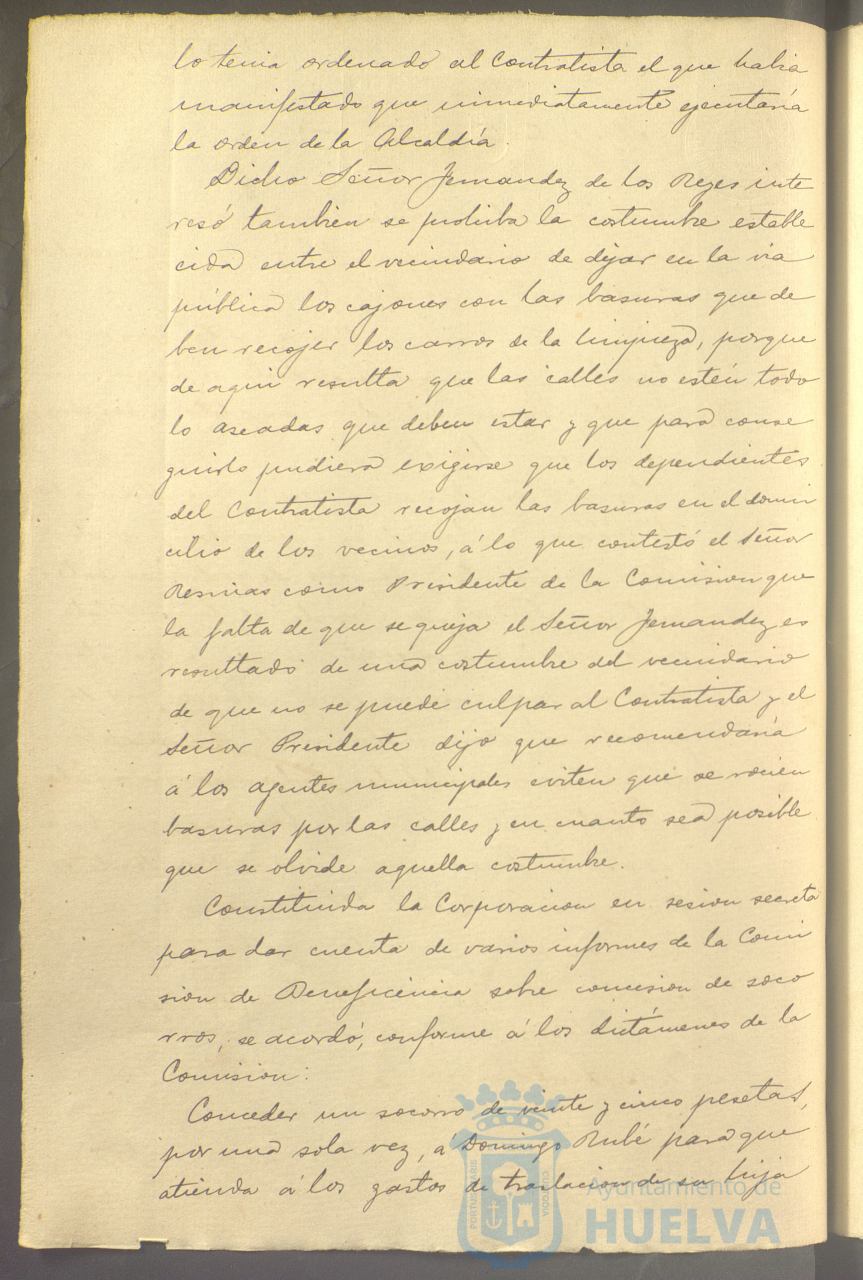 lo tenia ordenado al Contratista el que habia
manifestado que inmediatamente ejecutaría
la orden de la Alcaldía.
Dicho Señor Fernandez de los Reyes inte
resó tambien se prohiba la costumbre estable
cida entre el vecindario de dejar en la via
pública los cajones con las basuras que de
ben recojer los carros de la limpieza, porque
de aqui resulta que las calles no estén todo
lo aseadas que deben estar y que para conse
guirlo pudiera exigirse que los dependientes
del Contratista recojan las basuras en el domi
cilio de los vecinos, á lo que contestó el Señor
como Presidente de la Comision que
la falta de que se queja el Señor Fernandez es
resultado de una costumbre del vecindario
de que no se puede culpar al Contratista y el
Señor Presidente dijo que recomendaría
á los agentes municipales eviten que se rocien
basuras por las calles y en cuanto sea posible
que se olvide aquella costumbre.
Constituida la Corporacion en sesion secreta
para dar cuenta de varios informes de la Comi
sion de Beneficencia sobre concesion de soco
rros, se acordó, conforme á los dictámenes de la
Comision:
Conceder un socorro de veinte y cinco pesetas,
por una sola vez, á Domingo Rubé para que
atienda á los gastos de traslacion de su hija
Ayuntamiento de
HUELVA